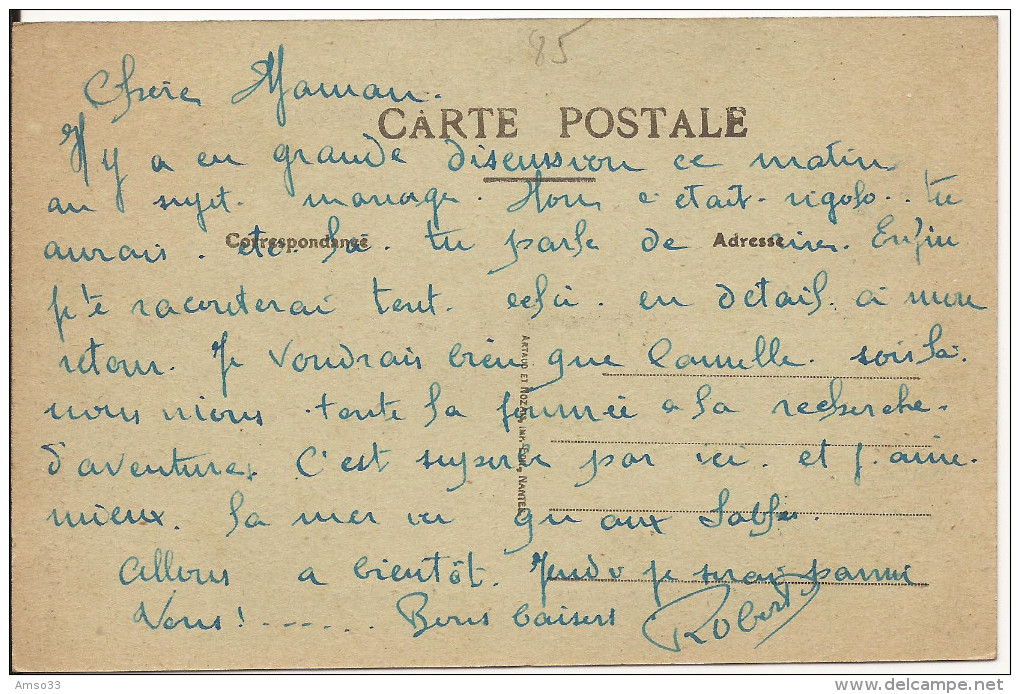 85
Chère Maman.
CARTE POSTALE
Il y a eu grande discussion ce matin
au sujet. mariage. c'était. rigolo.. tu
aurais. été là. tu parle de rires. Enfin
Correspondance
Adresse
j't'e raconterai tout. celà. en détail. à mon
retour. Je voudrais bien que Camille. soit là.
nous irions. toute la journée a la recherche.
d'aventures. C'est superbe par ici. et j.aime.
mieux. la mer ici qu'aux Sables.
Allons a bientôt. Jeudi je serai parmi
Vous!...... Bons baisers Robert
ARTAUD ET NOZAIS, IMP. NANTES
Amso33
delcampe.net